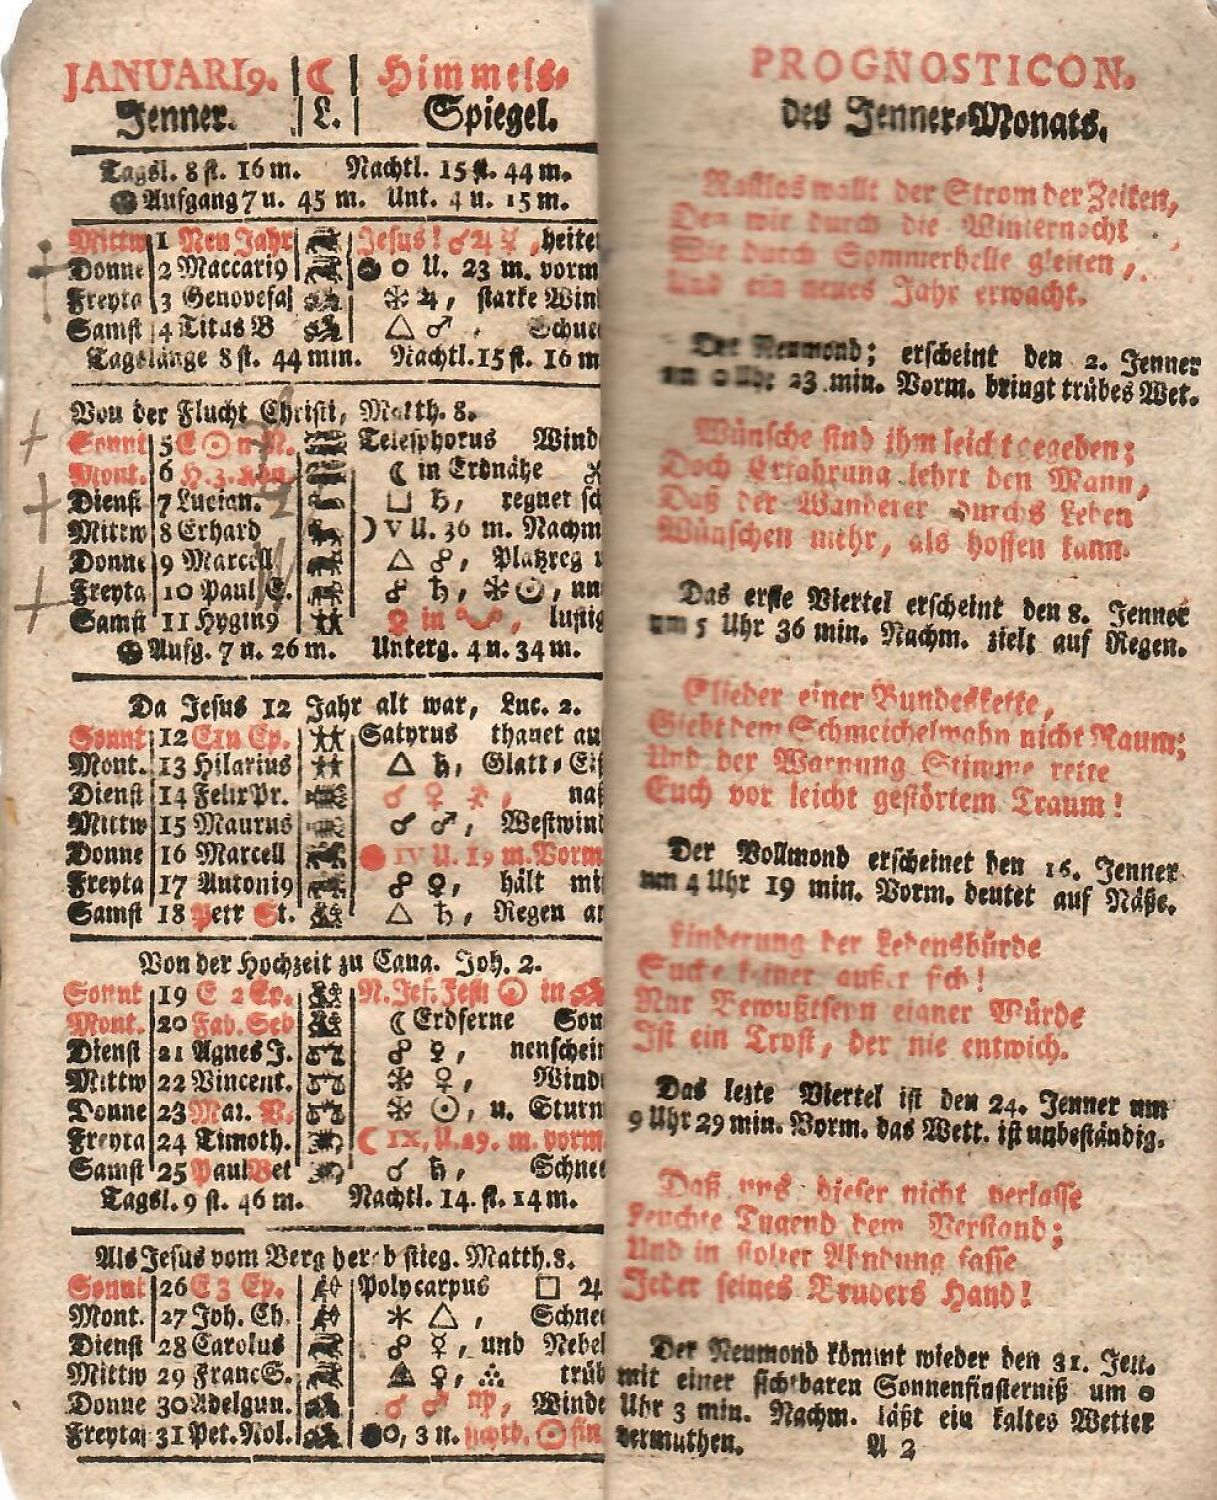 JANUARI9. ☾ Himmels-
Jenner. L. Spiegel.
Tagsl. 8 st. 16 m. Nachtl. 15 st. 44 m.
Aufgang 7 u. 45 m. Unt. 4 u. 15 m.
Mittw 1 Neu Jahr Jesus! ☌ ♃ ☿, heiter
Donne 2 Maccari9 0 U. 23 m. vorm
Freyta 3 Genovefa ✻ ♃, starke Win
Samst 4 Titus B △ ♂, Schnee
Tagslänge 8 st. 44 min. Nachtl. 15 st. 16 m
Von der Flucht Christi, Matth. 8.
Sonnt 5 E ☉ n N. Telesphorus Wind
Mont. 6 H. 3. Kön. ☾ in Erdnähe
Dienst 7 Lucian. □ ♄, regnet sch
Mittw 8 Erhard ) V U. 36 m. Nachm
Donne 9 Marcell △ ☍, Platzreg
Freyta 10 Paul E. ☍ ♄, ✻ ☉, un
Samst 11 Hygin9 ♀ in, lustig
Aufg. 7 u. 26 m. Unterg. 4 u. 34 m.
Da Jesus 12 Jahr alt war, Luc. 2.
Sonnt 12 E 1 n Ep. Satyrus thauet au
Mont. 13 Hilarius △ ♄, Glatt-Eis
Dienst 14 Felix Pr. ☌ ♀, naß
Mittw 15 Maurus ☌ ♂, Westwind
Donne 16 Marcell IV U. 19 m. Vorm
Freyta 17 Antoni9 ☍ ♀, hält mi
Samst 18 Petr St. △ ♄, Regen an
Von der Hochzeit zu Cana. Joh. 2.
Sonnt 19 E 2 Ep. N. Jes. Fest ☉ in
Mont. 20 Fab. Seb ☾ Erdferne Son
Dienst 21 Agnes J. ☍ ☿, nenschein
Mittw 22 Vincent. ✻ ♀, Wind
Donne 23 Mar. V. ✻ ☉, u. Sturm
Freyta 24 Timoth. ☾ IX, U. 29. m. vorm
Samst 25 Paul Bek ☌ ♄, Schnee
Tagsl. 9 st. 46 m. Nachtl. 14. st. 14 m.
Als Jesus vom Berg herab stieg. Matth. 8.
Sonnt 26 E 3 Ep. Polycarpus □ ♃
Mont. 27 Joh. Ch. ✻ △, Schnee
Dienst 28 Carolus ☍ ☿, und Nebel
Mittw 29 Franc S. △ ♀, trüb
Donne 30 Adelgun. ☌ ♂ ♍, Winde
Freyta 31 Pet. Nol. 0, 3 n. ☉ fin
PROGNOSTICON.
des Jenner-Monats.
Rastlos wallt der Strom der Zeiten,
Den wir durch die Winternacht
Wie durch Sommerhelle gleiten,
Und ein neues Jahr erwacht.
Der Neumond; erscheint den 2. Jenner
um 0 Uhr 23 min. Vorm. bringt trübes Wet.
Wünsche sind ihm leicht gegeben;
Doch Erfahrung lehrt den Mann,
Daß der Wanderer durchs Leben
Wünschen mehr, als hoffen kann.
Das erste Viertel erscheint den 8. Jenner
um 5 Uhr 36 min. Nachm. zielt auf Regen.
Glieder einer Bundeskette,
Giebt dem Schmeichelwahn nicht Raum;
Und der Warnung Stimme rette
Euch vor leicht gestörtem Traum!
Der Vollmond erscheinet den 16. Jenner
um 4 Uhr 19 min. Vorm. deutet auf Näße.
Linderung der Lebensbürde
Suche keiner außer sich!
Nur Bewußtseyn eigner Würde
Ist ein Trost, der nie entwich.
Das lezte Viertel ist den 24. Jenner um
9 Uhr 29 min. Vorm. das Wett. ist unbeständig.
Daß uns dieser nicht verlasse
Leuchte Tugend dem Verstand;
Und in stolzer Ahndung fasse
Jeder seines Bruders Hand!
Der Neumond kömmt wieder den 31. Jen.
mit einer sichtbaren Sonnenfinsterniß um 0
Uhr 3 min. Nachm. läßt ein kaltes Wetter
vermuthen. A 2